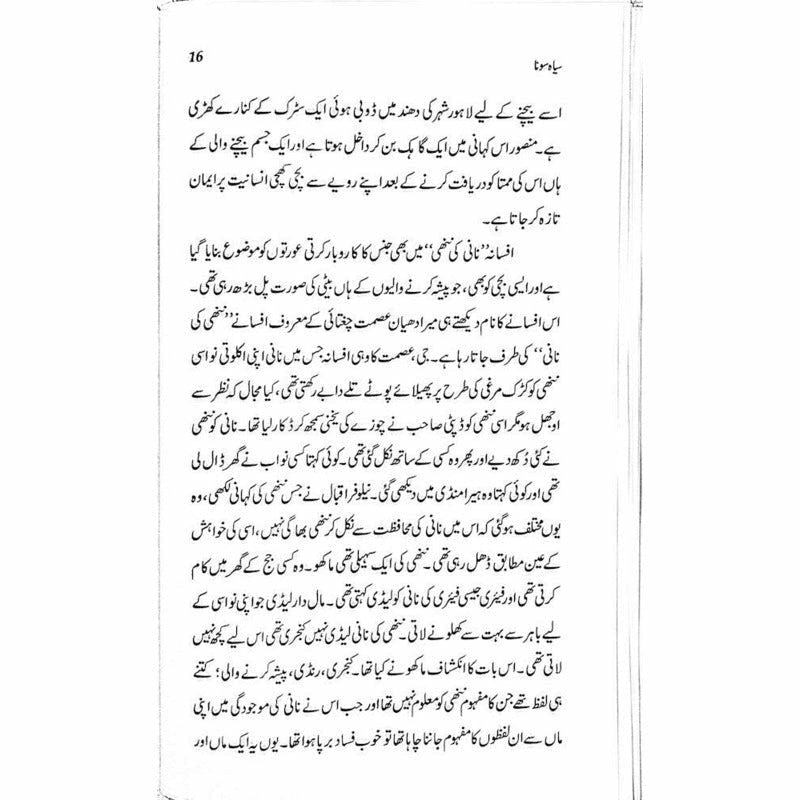 16
سیاہ سونا
اسے بیچنے کے لیے لاہور شہر کی دھند میں ڈوبی ہوئی ایک سڑک کے کنارے کھڑی
ہے۔ منصور اس کہانی میں ایک گاہک بن کر داخل ہوتا ہے اور ایک جسم بیچنے والی کے
ہاں اس کی ممتا کو دریافت کرنے کے بعد اپنے رویے سے بچی کھچی انسانیت پر ایمان
تازہ کر جاتا ہے۔
افسانہ ”نانی کی ننھی“ میں بھی جنس کا کاروبار کرتی عورتوں کو موضوع بنایا گیا
ہے اور ایسی بچی کو بھی، جو پیشہ کرنے والیوں کے ہاں بیٹی کی صورت پل بڑھ رہی تھی۔
اس افسانے کا نام دیکھتے ہی میرا دھیان عصمت چغتائی کے معروف افسانے ”ننھی کی
نانی“ کی طرف جاتا رہا ہے۔ جی، عصمت کا وہی افسانہ جس میں نانی اپنی اکلوتی نواسی
ننھی کو کڑک مرغی کی طرح پر پھیلائے پوٹے تلے دابے رکھتی تھی، کیا مجال کہ نظر سے
اوجھل ہو مگر اسی ننھی کو ڈپٹی صاحب نے چوزے کی یخنی سمجھ کر ڈکار لیا تھا۔ نانی کو ننھی
نے کئی دُکھ دیے اور پھر وہ کسی کے ساتھ نکل گئی تھی۔ کوئی کہتا کسی نواب نے گھر ڈال لی
تھی اور کوئی کہتا وہ ہیرا منڈی میں دیکھی گئی۔ نیلوفر اقبال نے جس ننھی کی کہانی لکھی، وہ
یوں مختلف ہو گئی کہ اس میں نانی کی محافظت سے نکل کر ننھی بھاگی نہیں، اسی کی خواہش
کے عین مطابق ڈھل رہی تھی۔ ننھی کی ایک سہیلی تھی ماکھو۔ وہ کسی جج کے گھر میں کام
کرتی تھی اور فیئری جیسی فیئری کی نانی کو لیڈی کہتی تھی۔ مال دار لیڈی جو اپنی نواسی کے
لیے باہر سے بہت سے کھلونے لاتی۔ ننھی کی نانی لیڈی نہیں کنجری تھی اس لیے کچھ نہیں
لاتی تھی۔ اس بات کا انکشاف ماکھو نے کیا تھا۔ کنجری، رنڈی، پیشہ کرنے والی؛ کتنے
ہی لفظ تھے جن کا مفہوم ننھی کو معلوم نہیں تھا اور جب اس نے نانی کی موجودگی میں اپنی
ماں سے ان لفظوں کا مفہوم جاننا چاہا تھا تو خوب فساد برپا ہوا تھا۔ یوں یہ ایک ماں اور